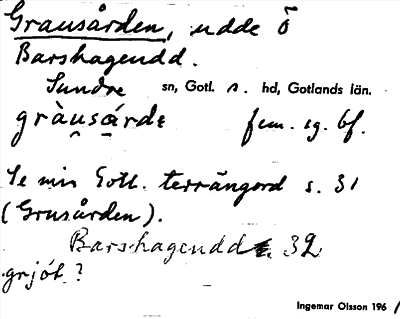 Grausården, udde Ö
Barshagendd.
Sundre sn, Gotl. s. hd, Gotlands län.
gràusárdɛ fem. sg. bf.
Se min Gotl. terrängord s. 31
(Grusården).
Barshagendd s. 32
grjót?
Ingemar Olsson 1961